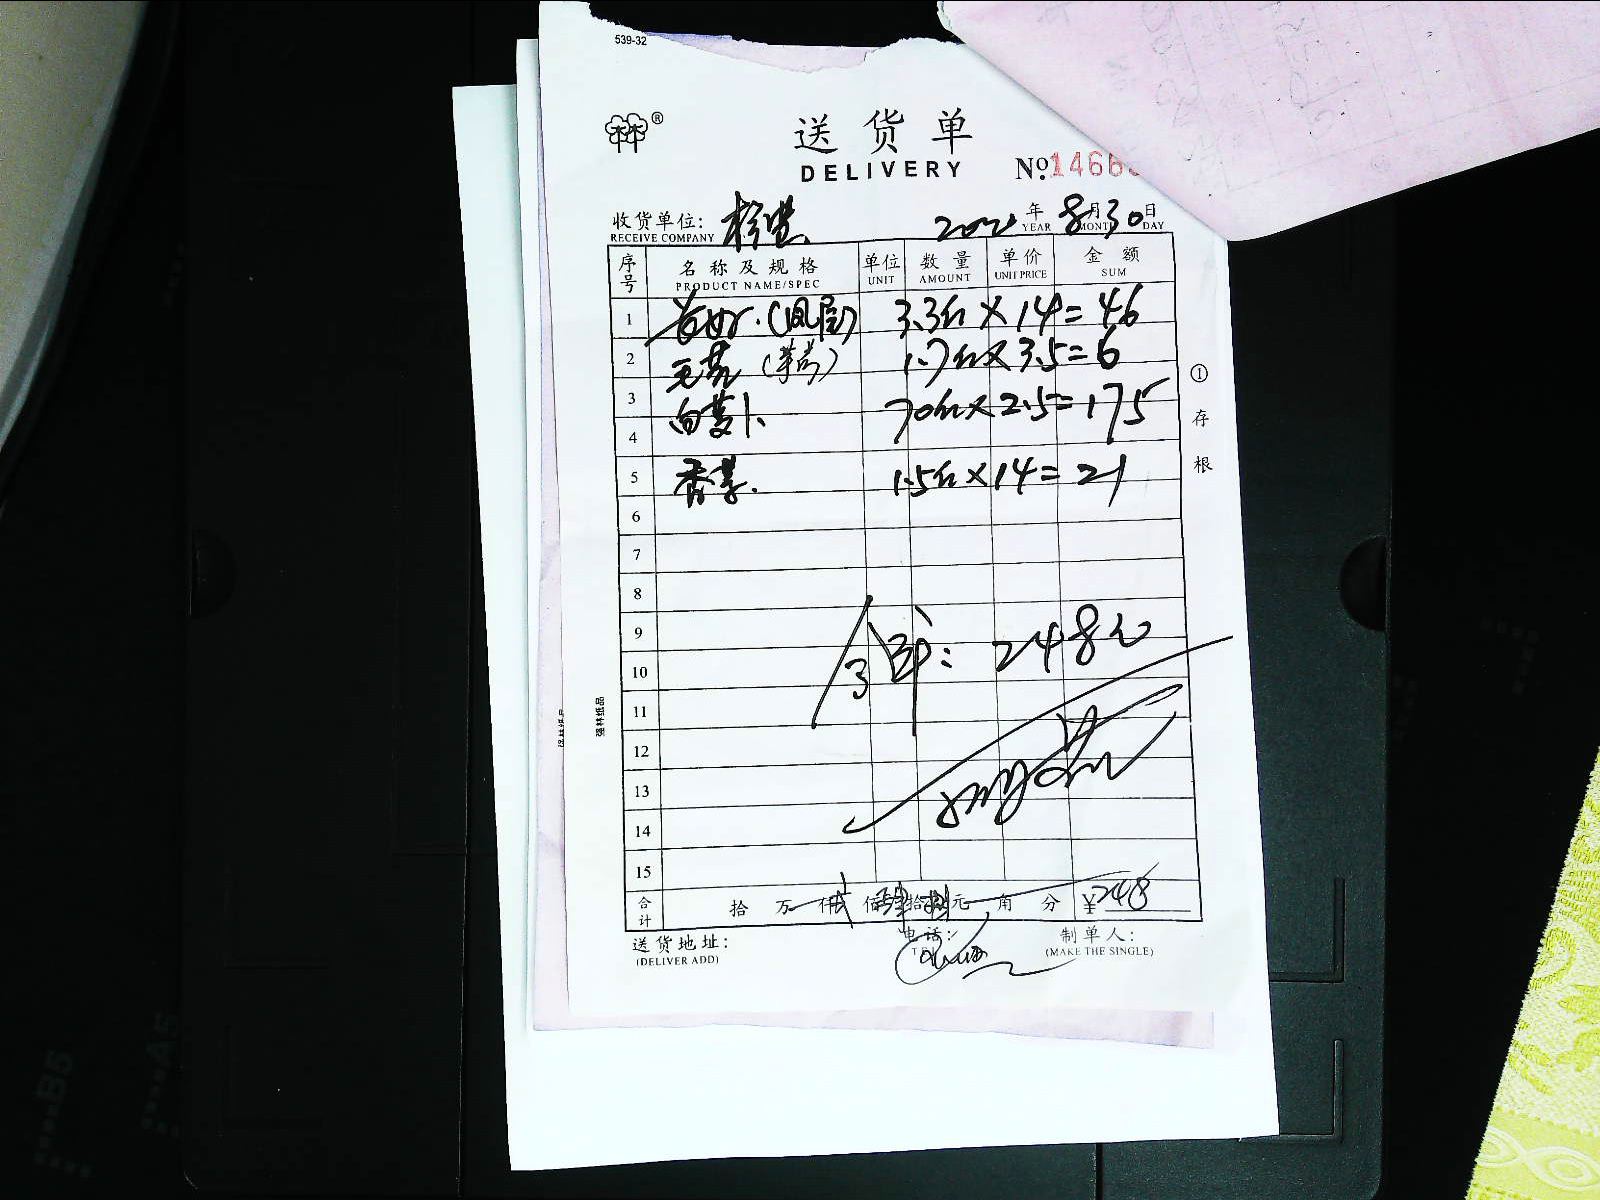 539-32
林®
送货单
DELIVERY
№1466
收货单位: 年 8月30日
RECEIVE COMPANY YEAR MONTH DAY
序号 名称及规格 单位 数量 单价 金额
PRODUCT NAME/SPEC UNIT AMOUNT UNIT PRICE SUM
1 (凤尾) 3.3斤×14=46
2 毛荞 1.7斤×3.5=6
3 白萝卜 70斤×2.5=175
4
5 香菜. 1.5斤×14=21
6
7
8
9
10 全部: 248元
11
12
13
14
15
合计 拾 万 仟 佰 拾 元 角 分 ¥248
送货地址: 电话: 制单人:
(DELIVER ADD) (MAKE THE SINGLE)
①存根
强林纸品
B5
A5